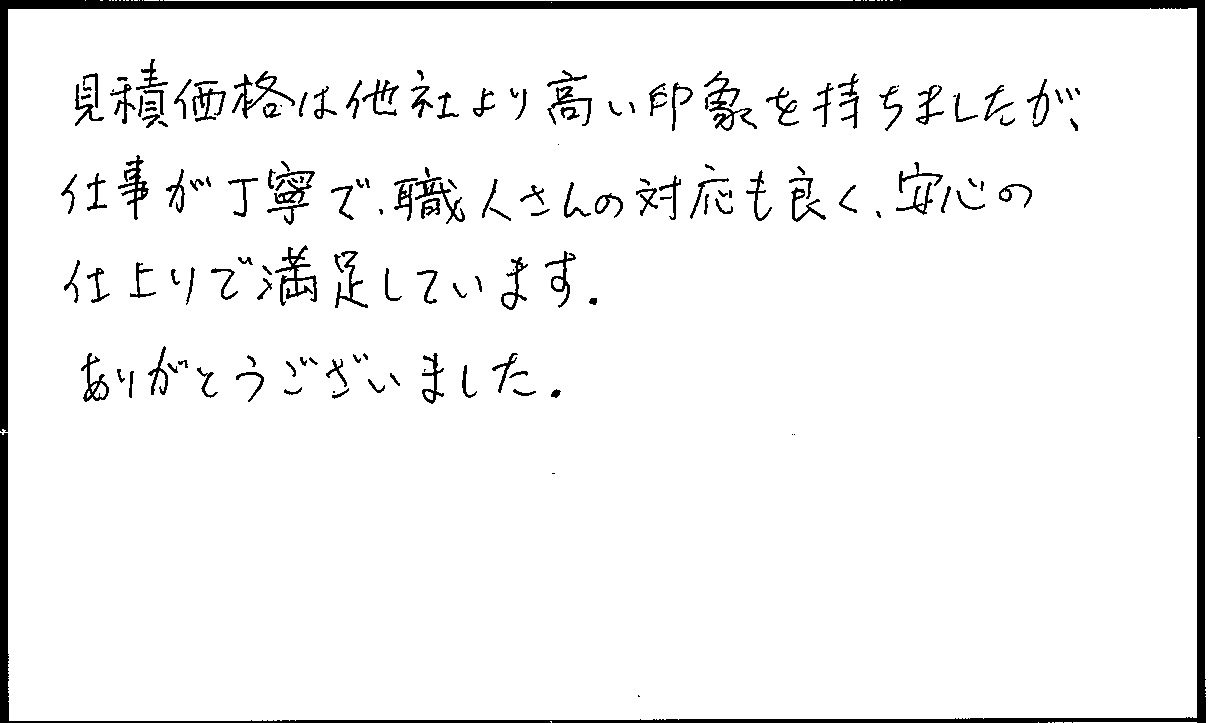 見積価格は他社より高い印象を持ちましたが、
仕事が丁寧で、職人さんの対応も良く、安心の
仕上りで満足しています.
ありがとうございました.